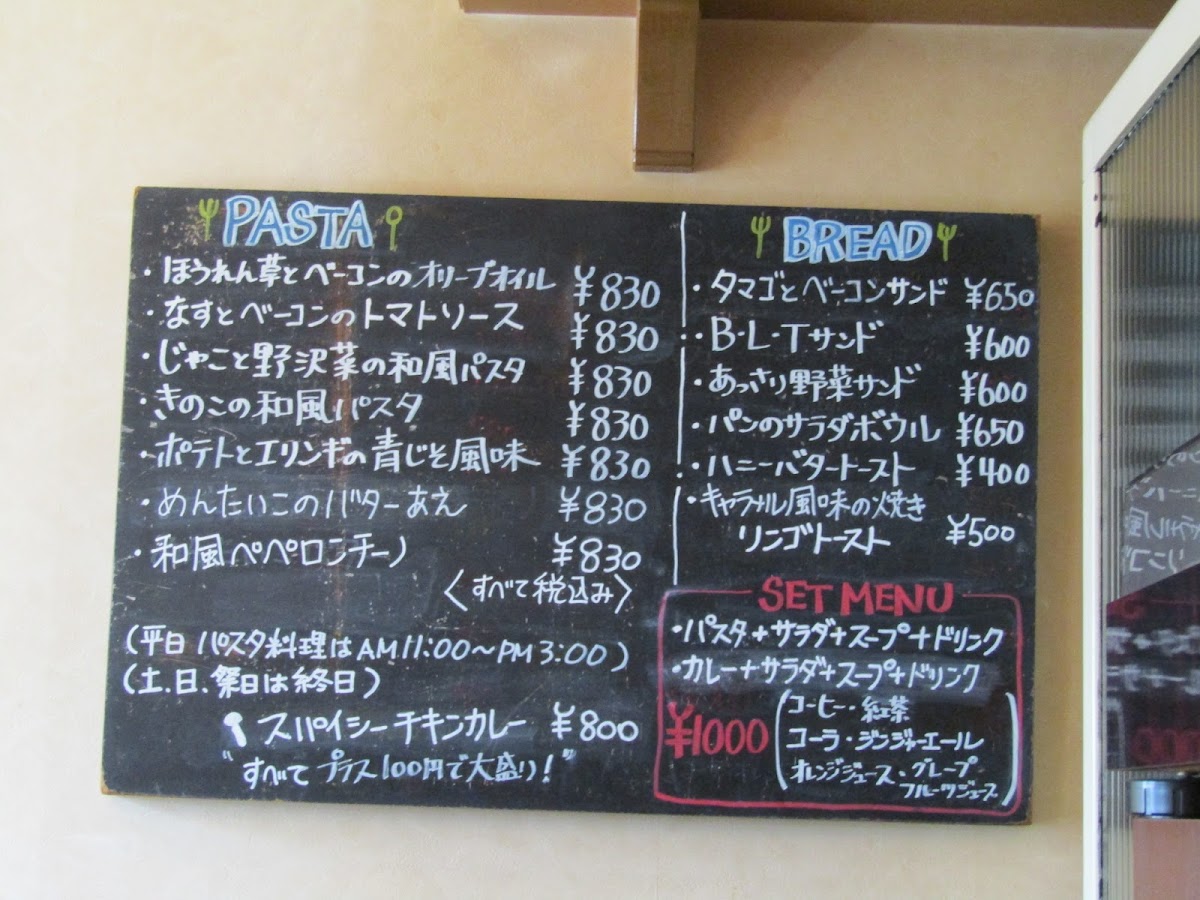 PASTA
・ほうれん草とベーコンのオリーブオイル ¥830
・なすとベーコンのトマトソース ¥830
・じゃこと野沢菜の和風パスタ ¥830
・きのこの和風パスタ ¥830
・ポテトとエリンギの青じそ風味 ¥830
・めんたいこのバターあえ ¥830
・和風ペペロンチーノ ¥830
〈すべて税込み〉
(平日 パスタ料理はAM11:00〜PM3:00)
(土、日、祭日は終日)
スパイシーチキンカレー ¥800
"すべてプラス100円で大盛り!"
BREAD
・タマゴとベーコンサンド ¥650
・B-L-Tサンド ¥600
・あっさり野菜サンド ¥600
・パンのサラダボウル ¥650
・ハニーバタートースト ¥400
・キャラメル風味の焼き
リンゴトースト ¥500
SET MENU
・パスタ+サラダ+スープ+ドリンク
・カレー+サラダ+スープ+ドリンク
¥1000
(コーヒー・紅茶
コーラ・ジンジャーエール
オレンジジュース・グレープ
フルーツジュース)